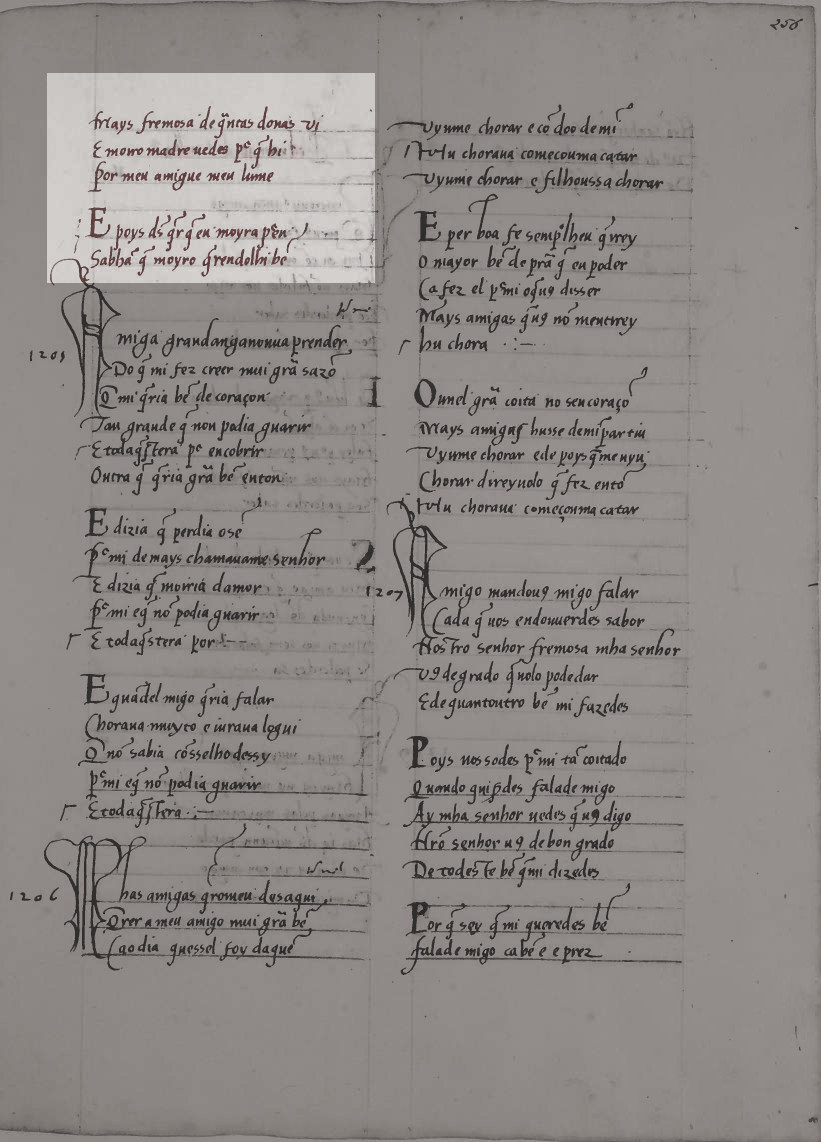 256
Mays fremosa de q̃ntas donas vi
E moiro madre uedes pᵉ q̃ hi
Por meu amigue meu lume
E poys ds̃ q̃r q̃ eu moyra p̃en
Sabhã q̃ moyro q̃rendolhi bẽ
1205
Amiga grandanganonua prender
Do q̃ mi fez creer mui grã sazõ
Q̃ mi q̃ria bẽ de coraçon
Tan grande q̃ non podia guarir
E todaq̃stera pᵉ encobrir
Outra q̃ q̃ria grã bẽ enton
E dizia q̃ perdia o sẽ
pᵉ mi demays chamauame senhor
E dizia q̃ moiria damor
pᵉ mi eq̃ nõ podia guarir
E todaq̃stera por
E quãdel migo q̃ria falar
Choraua muyto e iuraua logui
Q̃ nõ sabia cõsselho dessy
pᵉ mi eq̃ nõ podia guarir
E todaq̃stera
1206
has amigas q̃romeu desaqui
Q̃rer a meu amigo mui grã bẽ
Cao dia quessel foy daquẽ
Vyume chorar e cõ doo de mi
Hu choraua comecouma catar
Vyume chorar e filhoussa chorar
E per boa fe semp̃lheu q̃rrey
O mayor bẽ de prã q̃ eu poder
Ca fez el pᵉ mi oq̃uꝯ disser
Mays amigas q̃uꝯ nõ mentirey
hu chora
Ouuel grã coita no seu coraçõ
Mays amigas husse demi partiu
Vyume chorar e de poys q̃me uyu
Chorar direyuolo q̃ fez entõ
Hu choraua começouma catar
1207
Amigo mandouꝯ migo falar
Cada q̃ uos endouuerdes sabor
Nostro senhor fremosa mha senhor
Vꝯ de grado q̃ uolo podedar
E de quantoutro bẽ mi fazedes
Poys uossodes pᵉ mi tã coitado
Quando quiserdes falade migo
Ay mha senhor uedes q̃ uꝯ digo
Nrõ senhor uꝯ de bon grado
De todeste bẽ q̃mi dizedes
Por q̃ sey q̃ mi queredes bẽ
falade migo ca bẽ e e prez